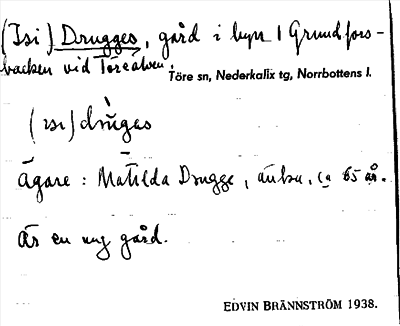 (Isi) Drugges, gård i byn / Grundfors-
backen vid Töreälven.
Töre sn, Nederkalix tg, Norrbottens l.
(ısı) drùgas
Ägare: Matilda Drugge, änka, ca 65 år.
Är en ung gård.
EDVIN BRÄNNSTRÖM 1938.